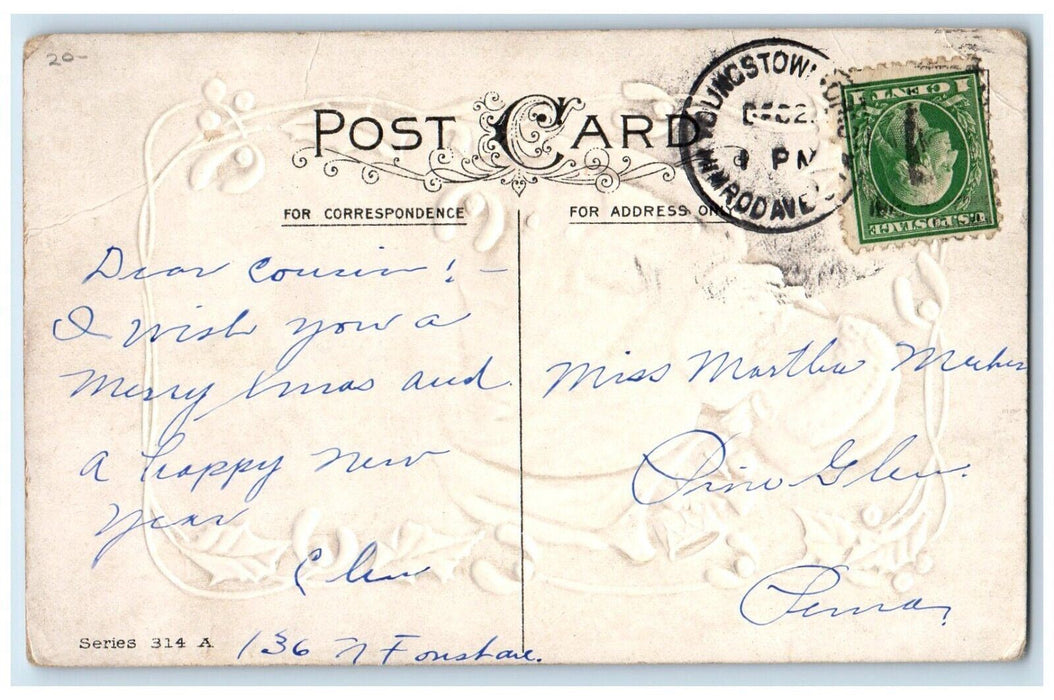 20-
POST CARD
FOR CORRESPONDENCE
FOR ADDRESS ONLY
YOUNGSTOWN, OHIO
DEC 2
1 PM
NIMROD AVE STA
1 CENT 1
U.S. POSTAGE
Dear Cousin! -
I wish you a
Merry Xmas and
a happy new
year
Miss Martha
Pine Glen.
Penna,
Series 314 A
136 N